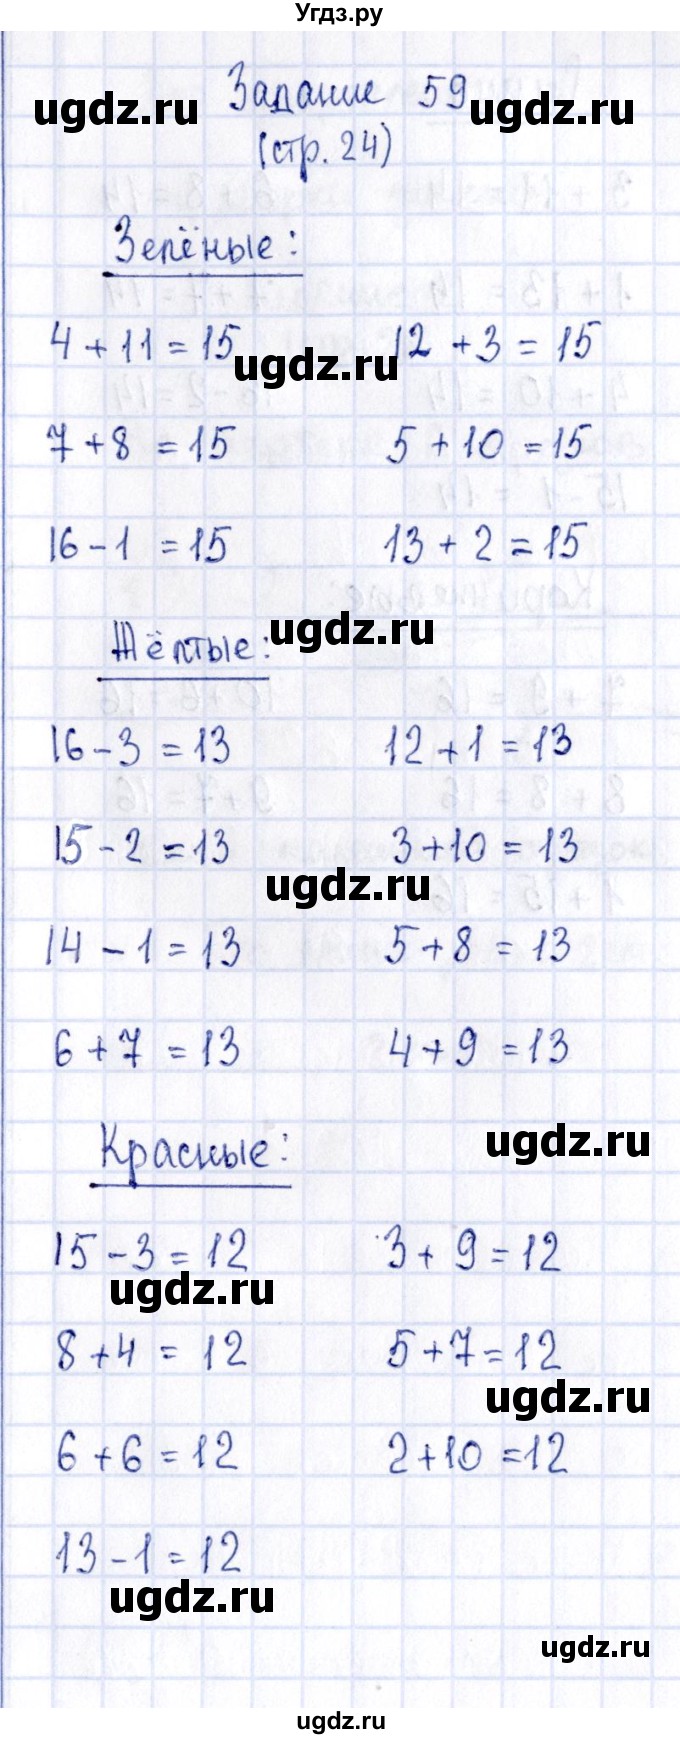 Угдз.ру
Задание 59
ugdz.ru ugdz.ru
(стр. 24)
Зелёные:
4 + 11 = 15 12 + 3 = 15
ugdz.ru
7 + 8 = 15 5 + 10 = 15
16 - 1 = 15 13 + 2 = 15
Жёлтые:
ugdz.ru
16 - 3 = 13 12 + 1 = 13
15 - 2 = 13 3 + 10 = 13
ugdz.ru
14 - 1 = 13 5 + 8 = 13
6 + 7 = 13 4 + 9 = 13
Красные:
ugdz.ru
15 - 3 = 12 3 + 9 = 12
ugdz.ru
8 + 4 = 12 5 + 7 = 12
ugdz.ru
6 + 6 = 12 2 + 10 = 12
13 - 1 = 12
ugdz.ru
ugdz.ru
ugdz.ru